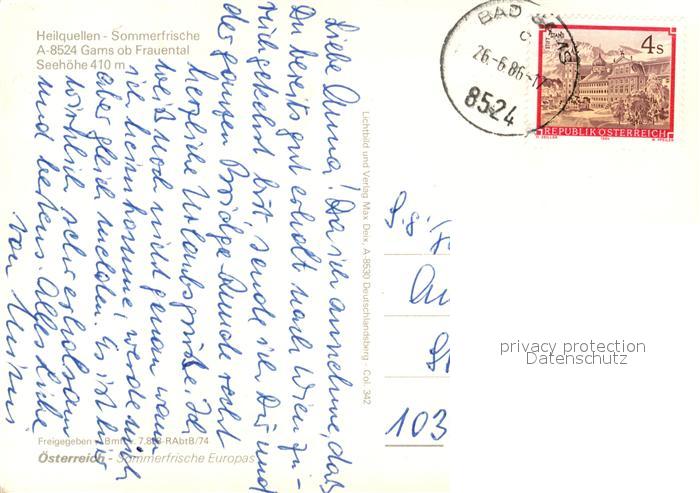 Heilquellen - Sommerfrische
A-8524 Gams ob Frauental
Seehöhe 410 m
Liebe Anna! Da ich annehme, daß
Du bereits gut erholt nach Wien zu-
rückgekehrt bist sende ich Dir und
der ganzen Bridge-Runde recht
herzliche Urlaubsgrüße. Ich
weiß noch nicht genau wann
ich heimkomme, werde mich
aber gleich melden. Es ist hier
wirklich sehr erholsam
und bestens. Alles Liebe
von
Lichtbild und Verlag Max Deix, A-8530 Deutschlandsberg - Col. 342
Freigegeben v. BmfLv. 7.8 -RAbtB/74
Österreich - Sommerfrische Europas
BAD
26.-6.86-17
c
8524
4s
REPUBLIK ÖSTERREICH
103
privacy protection
Datenschutz